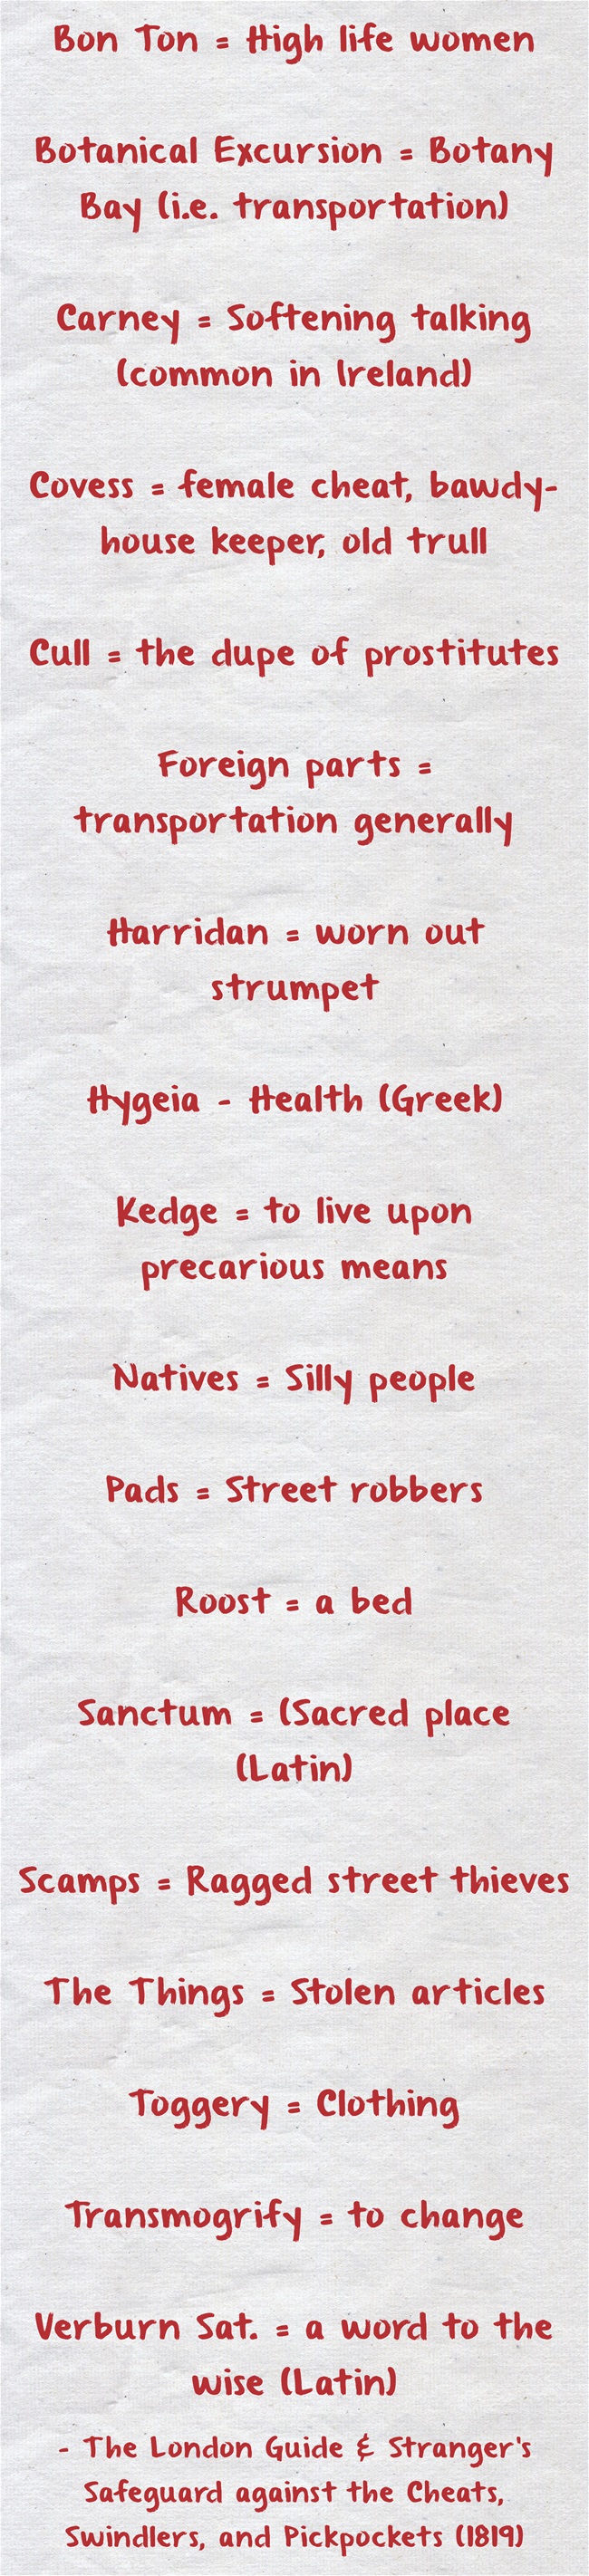 Bon Ton = High life women
Botanical Excursion = Botany
Bay (i.e. transportation)
Carney = Softening talking
(common in Ireland)
Covess = female cheat, bawdy-
house keeper, old trull
Cull = the dupe of prostitutes
Foreign parts =
transportation generally
Harridan = worn out
strumpet
Hygeia - Health (Greek)
Kedge = to live upon
precarious means
Natives = Silly people
Pads = Street robbers
Roost = a bed
Sanctum = (Sacred place
(Latin)
Scamps = Ragged street thieves
The Things = Stolen articles
Toggery = Clothing
Transmogrify = to change
Verburn Sat. = a word to the
wise (Latin)
- The London Guide & Stranger's
Safeguard against the Cheats,
Swindlers, and Pickpockets (1819)